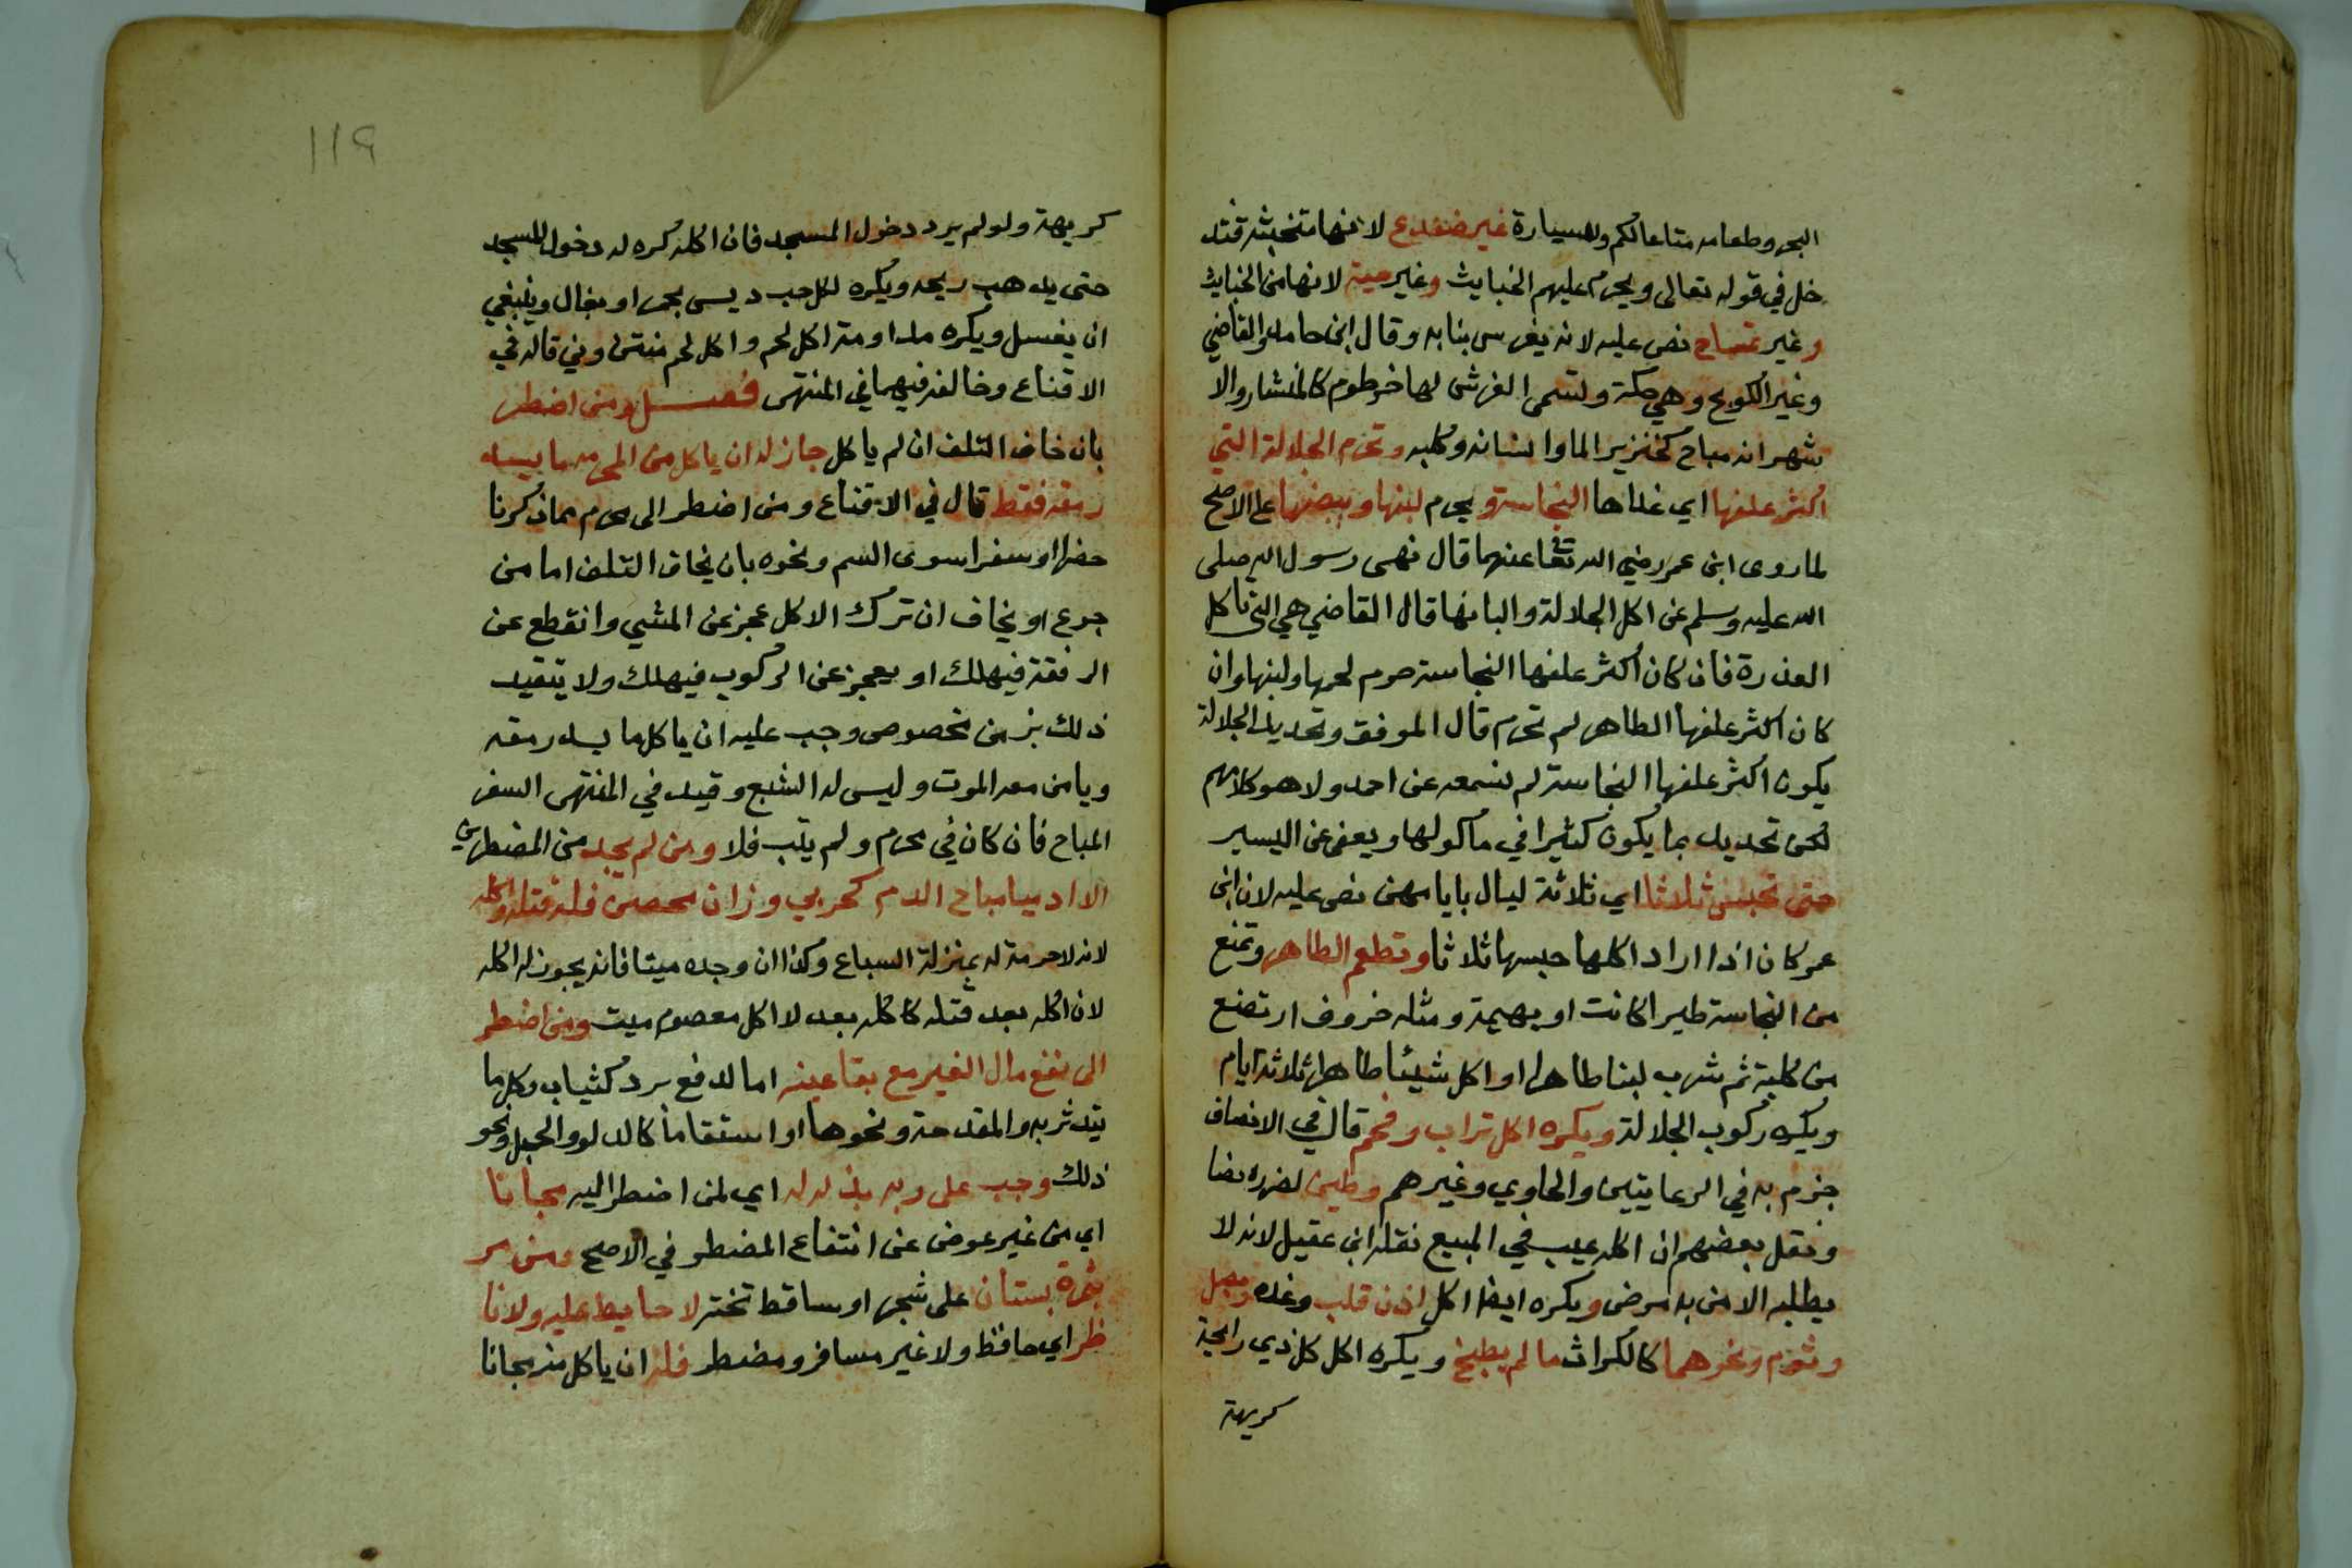 البحر وطعامه متاعا لكم وللسيارة غير ضفدع لانها متخبثة فتد
خل في قوله تعالى ويحرم عليهم الخبايث وغير حية لانها من الخبايث
وغير تمساح نص عليه لانه يفرس بنابه وقال ابن حامد والقاضي
وغير الكوسج وهي سمكة وتسمى القرش لها خرطوم كالمنشار والا
شهر انه مباح كخنزير الماء وانسانه وكلبه وتحرم الجلالة التي
اكثر علفها اي غذاها النجاسة ويحرم لبنها وبيضها على الاصح
لما روى ابن عمر رضي الله تعا عنهما قال نهى رسول الله صلى
الله عليه وسلم عن اكل الجلالة والبانها قال القاضي هي التي تاكل
العذرة فان كان اكثر علفها النجاسة حرم لحمها ولبنها وان
كان اكثر علفها الطاهر لم تحرم قال الموفق وتحديد الجلالة
يكون اكثر علفها النجاسة لم نسمعه عن احمد ولا هو كلامهم
لكن تحديد بما يكون كثيرا في ماكولها ويعفى عن اليسير
حتى تحبس ثلاثا اي ثلاثة ليال بايامهن نص عليه لان ابن
عمر كان اذا اراد اكلها حبسها ثلاثا وتطعم الطاهر وتمنع
من النجاسة طيرا كانت او بهيمة ومثله خروف ارتضع
من كلبة ثم شرب لبنا طاهرا او اكل شيئا طاهرا ثلاثة ايام
ويكره ركوب الجلالة ويكره اكل تراب وفحم قال في الانصاف
جزم به في الرعايتين والحاوي وغيرهم وطين لضرره نصا
ونقل بعضهم ان اكله عيب في المبيع نقله ابن عقيل لانه لا
يطلبه الا من به مرض ويكره ايضا اكل اذن قلب وغده وبصل
وثوم ونحوهما كالكراث ما لم يطبخ ويكره اكل كل ذي رايحة
كريهة
١١٩
كريهة ولو لم يرد دخول المسجد فان اكله كره له دخول المسجد
حتى يذهب ريحه ويكره اكل حب ديس بحمر او بغال وينبغي
ان يغسل ويكره مداومة اكل لحم واكل لحم منتن وني قاله في
الاقناع وخالفه فيهما في المنتهى فصل ومن اضطر
بان خاف التلف ان لم ياكل جاز له ان ياكل من المحرم ما يسد
رمقه فقط قال في الاقناع ومن اضطر الى محرم مما ذكرنا
حضرا او سفرا سوى السم ونحوه بان يخاف التلف اما من
جوع او يخاف ان ترك الاكل عجز عن المشي وانقطع عن
الرفقة فيهلك او يعجز عن الركوب فيهلك ولا يتقيد
ذلك بزمن مخصوص وجب عليه ان ياكل ما يسد رمقه
ويامن معه الموت وليس له الشبع وقيد في المنتهى السفر
المباح فان كان في محرم ولم يتب فلا ومن لم يجد من المضطرين
الا ادميا مباح الدم كحربي وزان محصن فله قتله واكله
لانه لا حرمة له بمنزلة السباع وكذا ان وجده ميتا فانه يجوز له اكله
لان اكله بعد قتله كاكله بعد لا اكل معصوم ميت ومن اضطر
الى نفع مال الغير مع بقا عينه اما لدفع برد كثياب وكل ما
يتدثر به والمقدحة ونحوها او استقا ما كالدلو والحبل ونحو
ذلك وجب على ربه بذله له اي لمن اضطر اليه مجانا
اي من غير عوض عن انتفاع المضطر في الاصح ومن مر
بثمرة بستان على شجر او ساقط تحته لا حايط عليه ولا نا
ظر اي حافظ ولا غير مسافر ومضطر فله ان ياكل منه مجانا